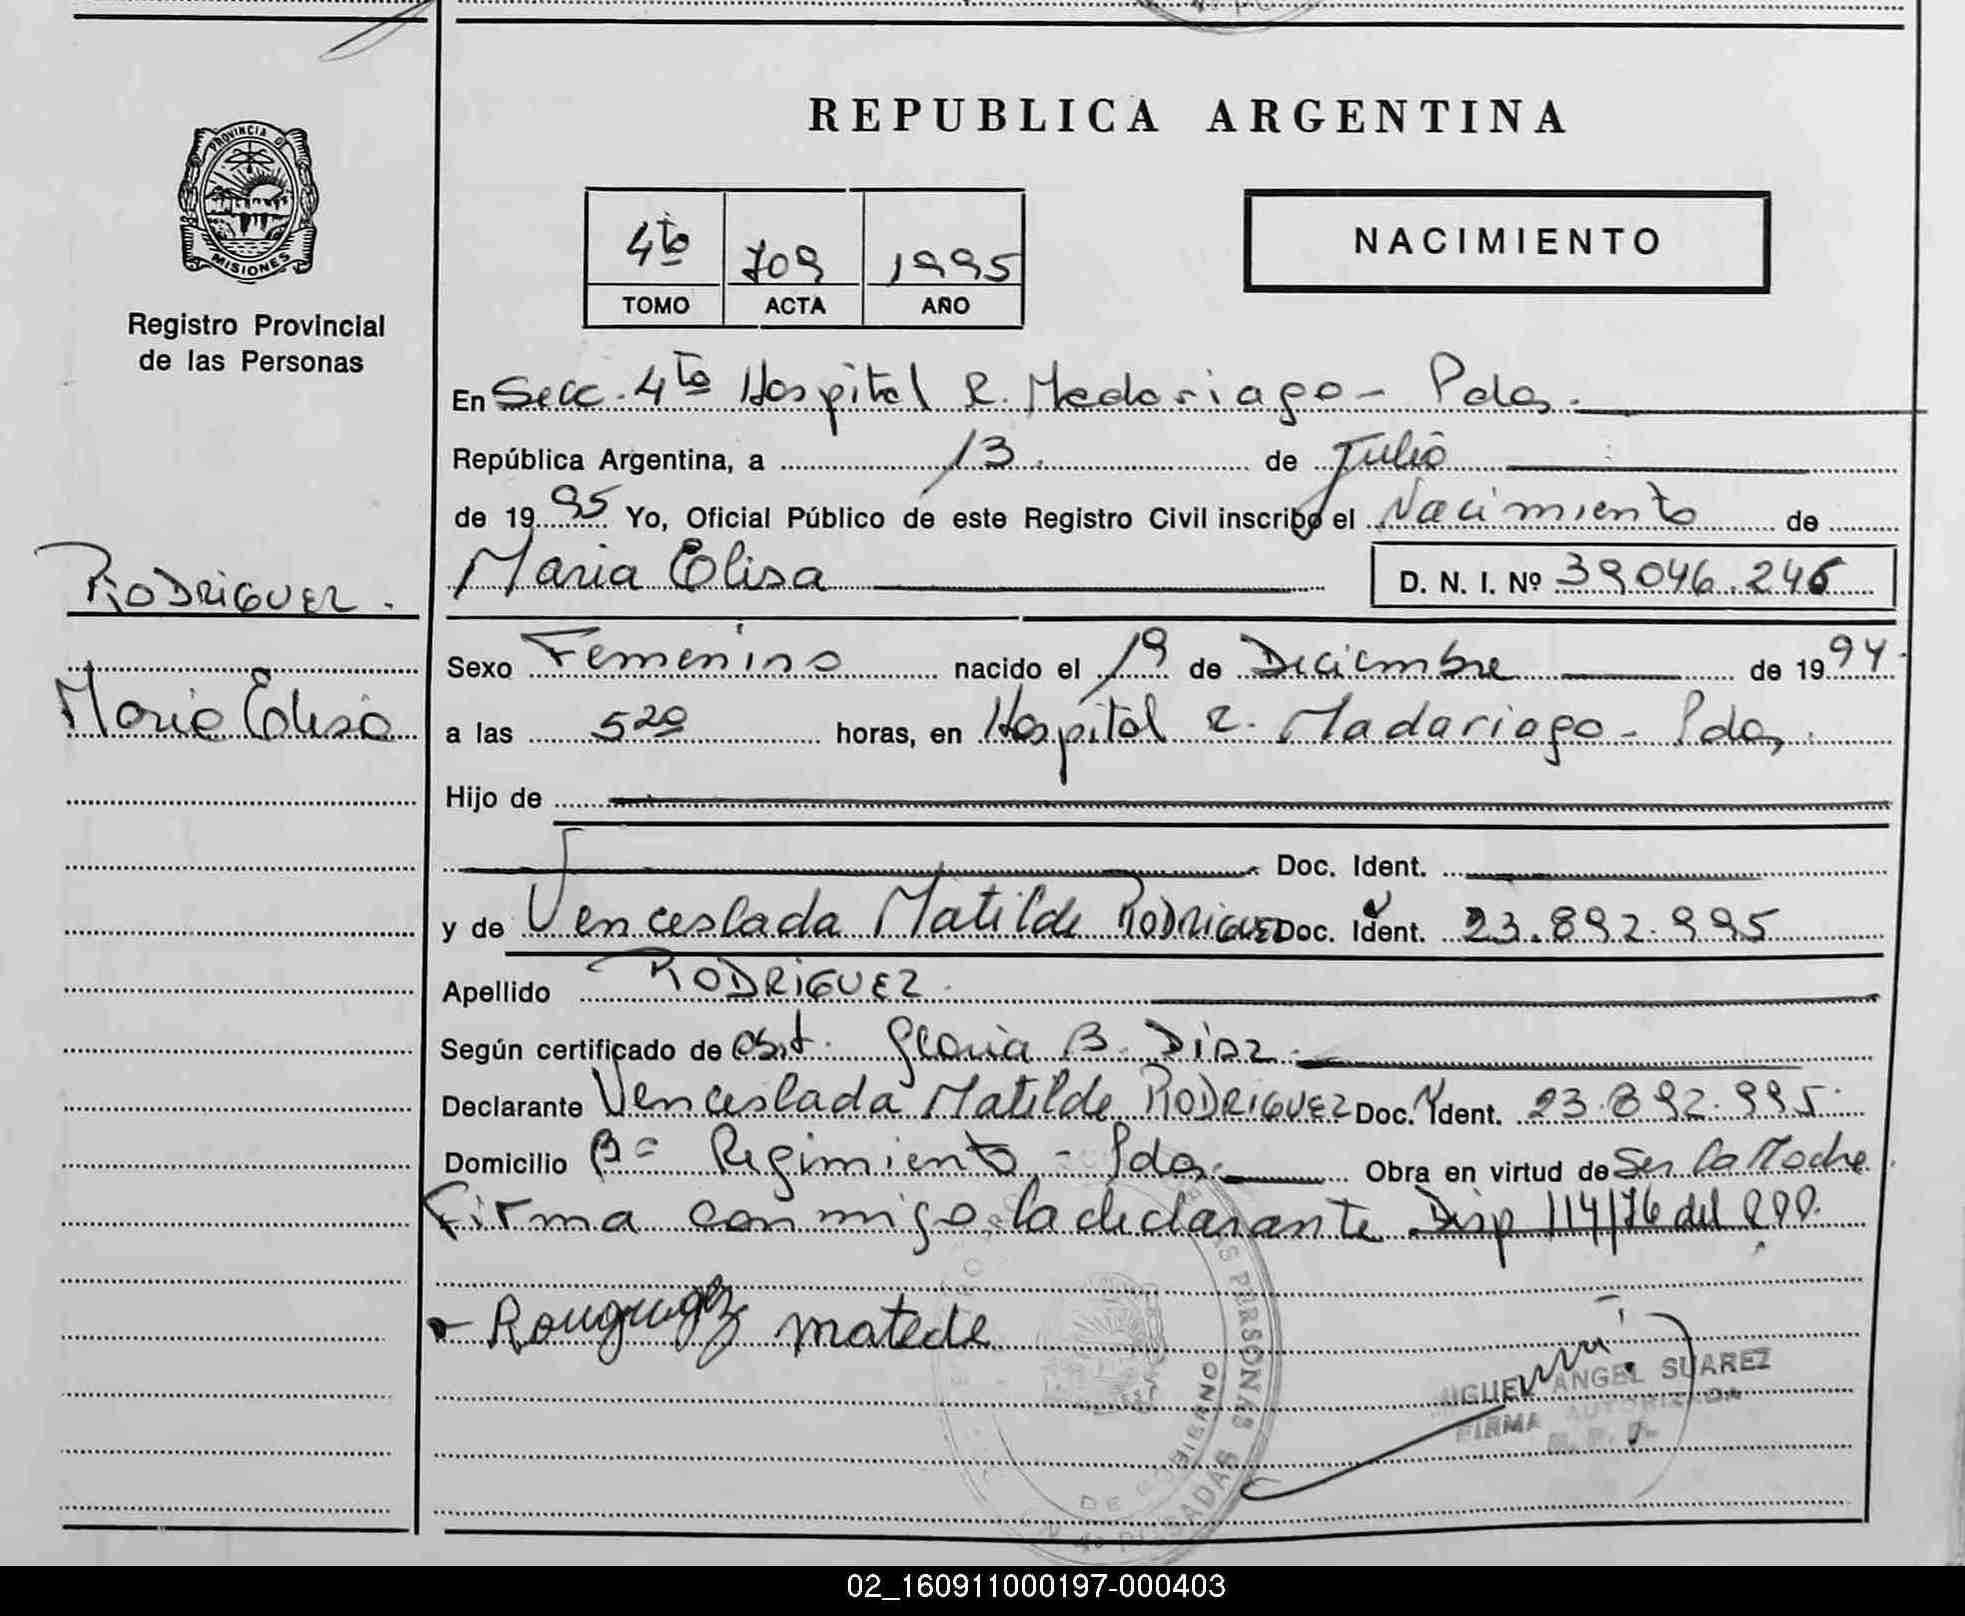 REPUBLICA ARGENTINA
PROVINCIA DE
MISIONES
Registro Provincial
de las Personas
4to 709 1995
TOMO ACTA AÑO
NACIMIENTO
En Secc. 4ta Hospital R. Madariaga - Pdas.
República Argentina, a 13 de Julio
de 1995 Yo, Oficial Público de este Registro Civil inscribo el Nacimiento de
RODRIGUEZ.
Maria Elisa D. N. I. Nº 39046.246
Sexo Femenino nacido el 19 de Diciembre de 1994
Maria Elisa
a las 5 20 horas, en Hospital R. Madariaga - Pdas.
Hijo de
Doc. Ident.
y de Venceslada Matilde RODRIGUEZ Doc. Ident. 23.892.995
Apellido RODRIGUEZ
Según certificado de Obst. Gloria B. Diaz
Declarante Venceslada Matilde RODRIGUEZ Doc. Ident. 23.892.995
Domicilio Bº Regimiento - Pdas. Obra en virtud de Ser la Madre
Firma conmigo la declarante Disp 114/76 del
matede
MIGUEL ANGEL SUAREZ
FIRMA AUTORIZADA
LAS PERSONAS
DE GOBIERNO
POSADAS
02_160911000197-000403